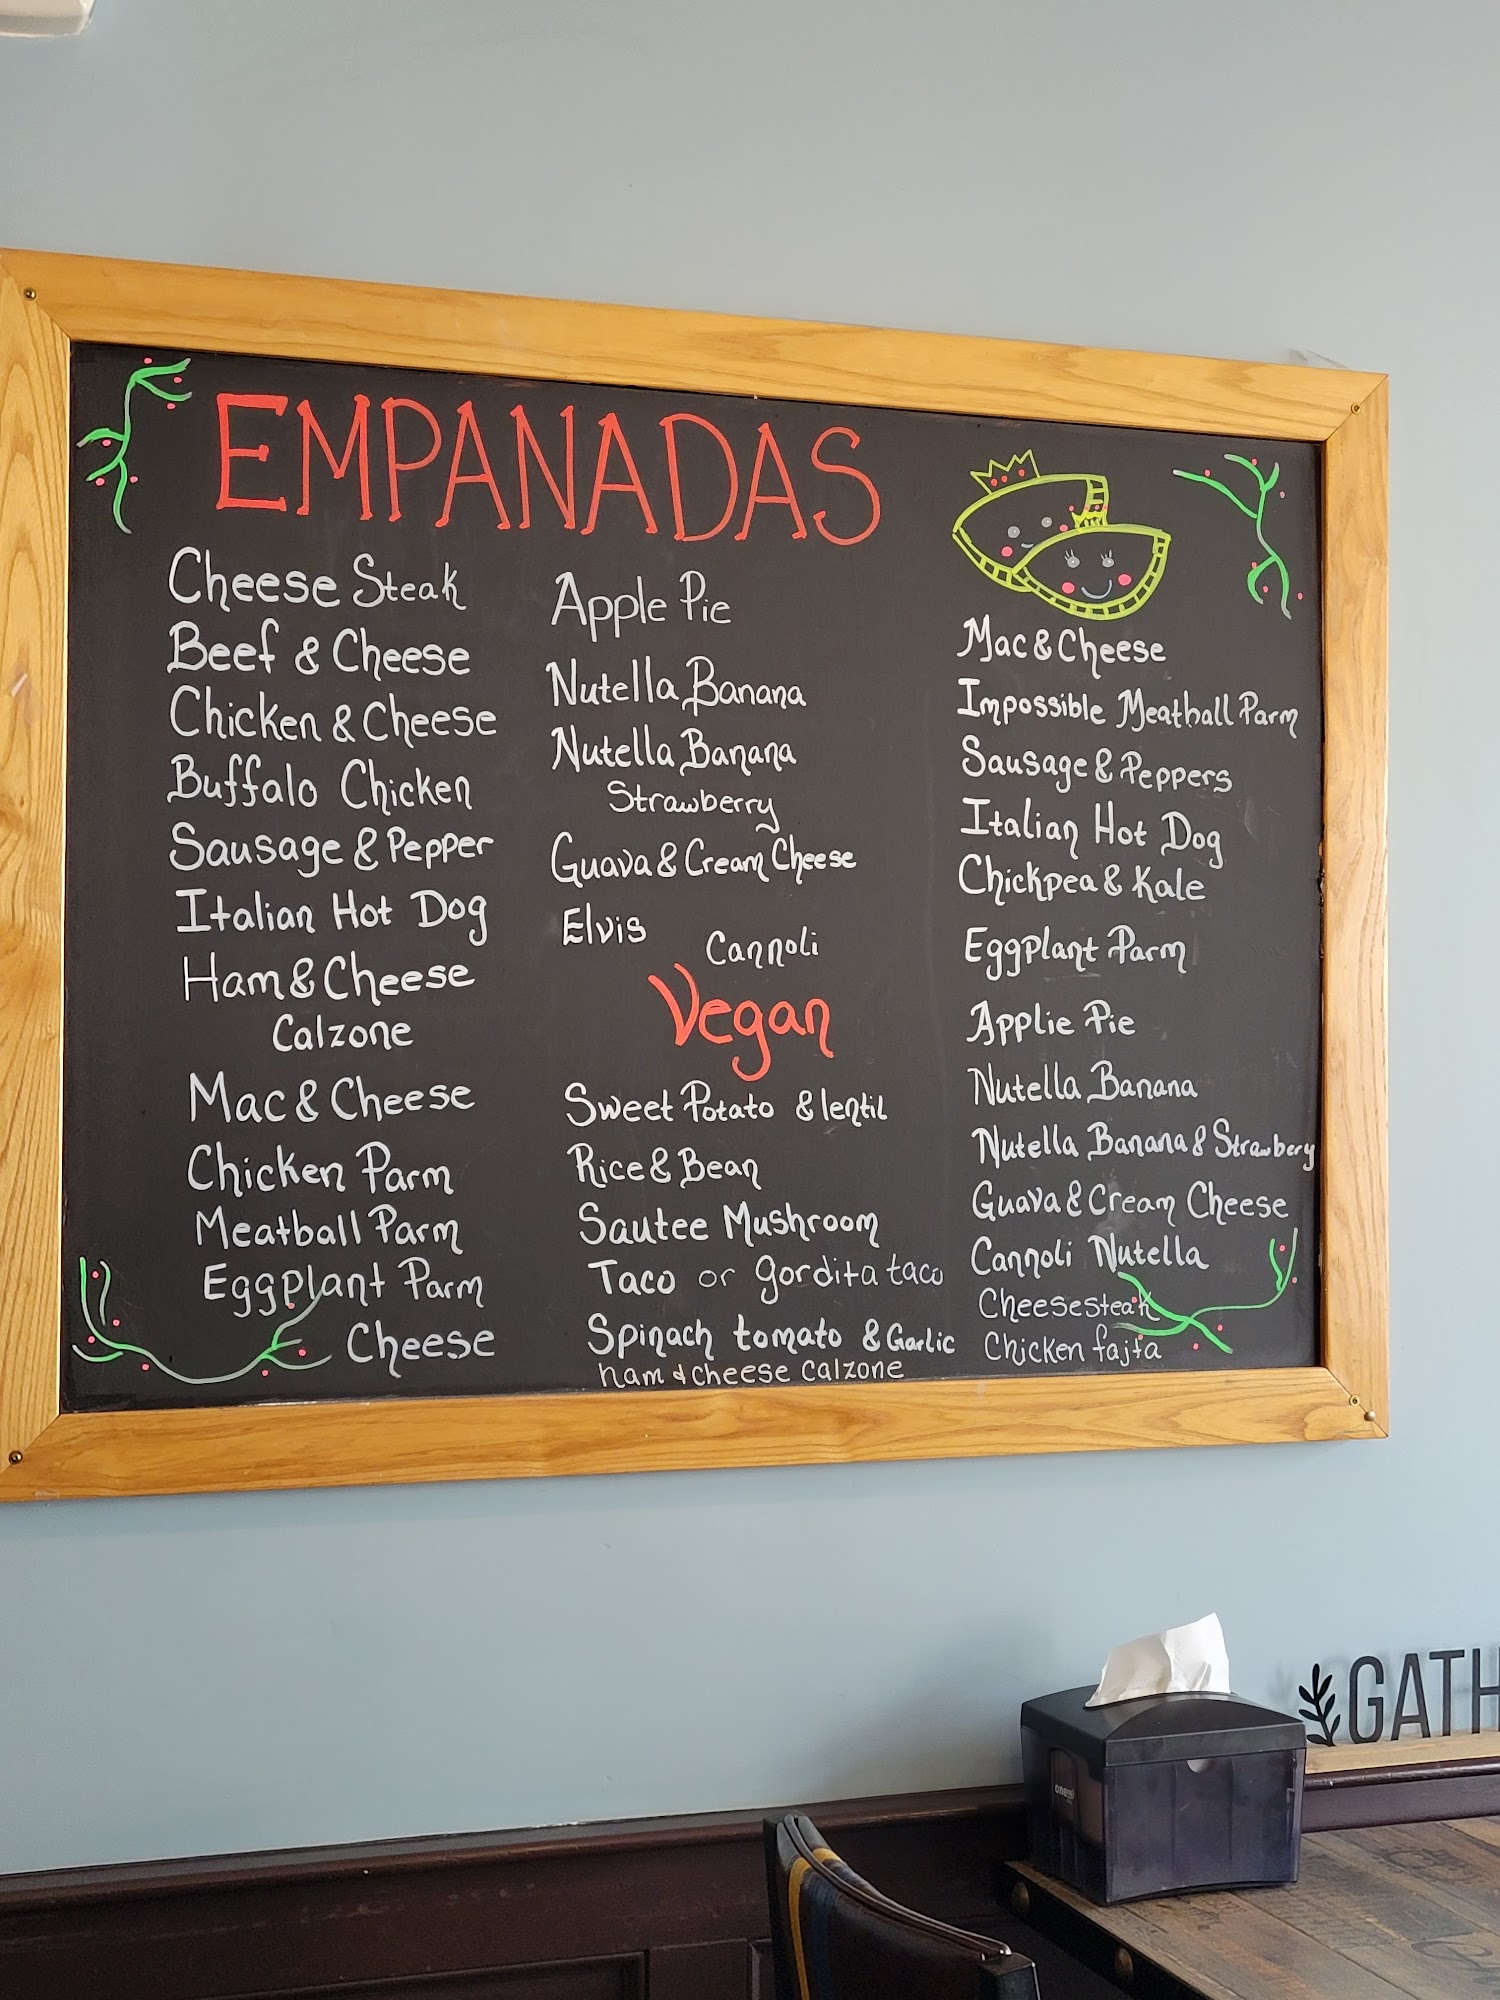 EMPANADAS
Cheese Steak
Beef & Cheese
Chicken & Cheese
Buffalo Chicken
Sausage & Pepper
Italian Hot Dog
Ham & Cheese
Calzone
Mac & Cheese
Chicken Parm
Meatball Parm
Eggplant Parm
Cheese
Apple Pie
Nutella Banana
Nutella Banana
Strawberry
Guava & Cream Cheese
Elvis
Cannoli
Vegan
Sweet Potato & lentil
Rice & Bean
Sautee Mushroom
Taco or gordita taco
Spinach tomato & Garlic
ham & cheese calzone
Mac & Cheese
Impossible Meatball Parm
Sausage & Peppers
Italian Hot Dog
Chickpea & Kale
Eggplant Parm
Applie Pie
Nutella Banana
Nutella Banana & Strawbery
Guava & Cream Cheese
Cannoli Nutella
Cheesesteak
Chicken fajta
GATH
one